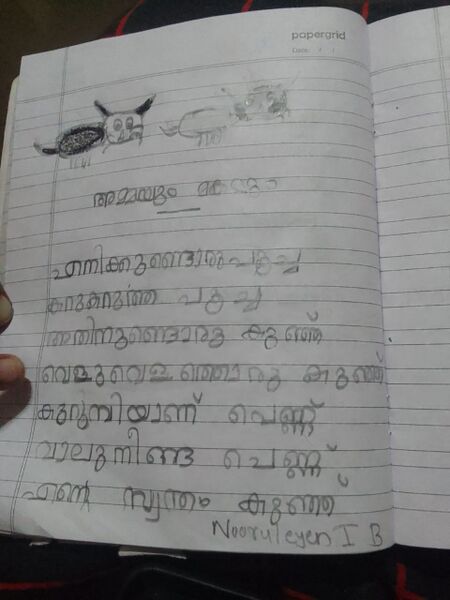 papergrid
Date: / /
അമ്മയും മകളും
എനിക്കുണ്ടൊരു പൂച്ച
കറുകറുത്ത പൂച്ച
അതിനുണ്ടൊരു കുഞ്ഞ്
വെളുവെളുത്തൊരു കുഞ്ഞ്
കുറുമ്പിയാണ് പെണ്ണ്
വാലുനീണ്ട പെണ്ണ്
എന്റെ സ്വന്തം കുഞ്ഞ്
Nooruleyen I B